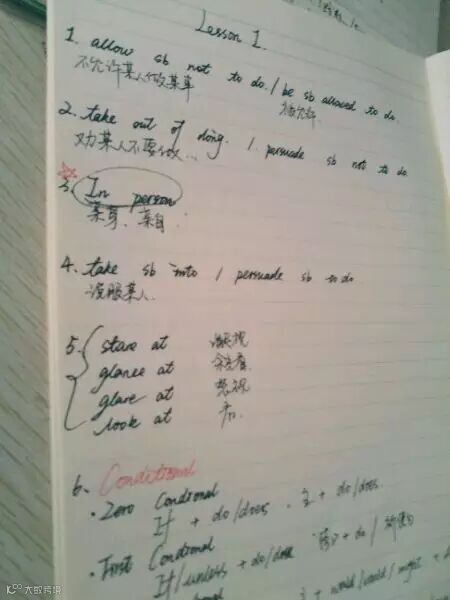 Lesson 1.
1. allow sb not to do. / be sb allowed to do.
不允许某人做某事 被允许.
2. take out of doing. / persuade sb not to do
劝某人不要做...
3. In person
亲身、亲自.
4. take sb into / persuade sb to do
说服某人.
5. stare at 凝视
glance at
glare at 怒视
look at 看
6. Conditional
· Zero Condional
If + do/does. 主 + do/does.
· First Condional
If/unless + do/does + do/
+ would/could/might + do
大数跨境